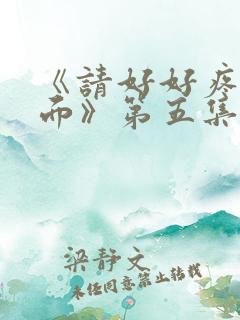 《請好好疼
而》第五集
梁静文
未经同意禁止转载